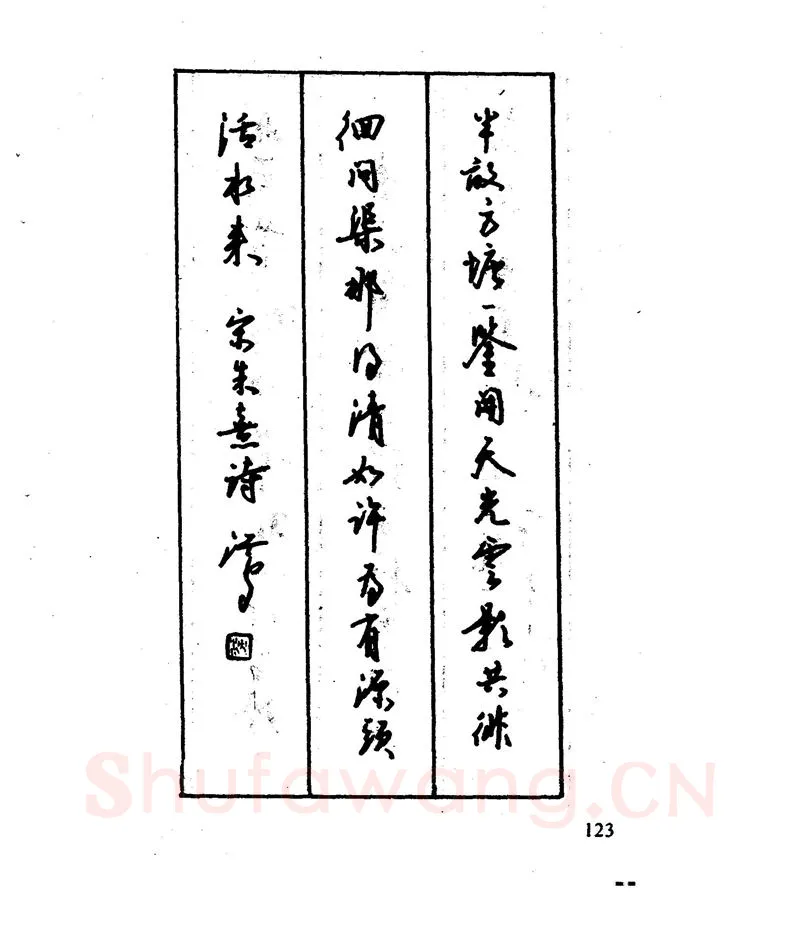 半畝方塘一鑒開天光雲影共徘
徊問渠那得清如許为有源頭
活水来 宋朱熹詩
123
Shufawang.CN